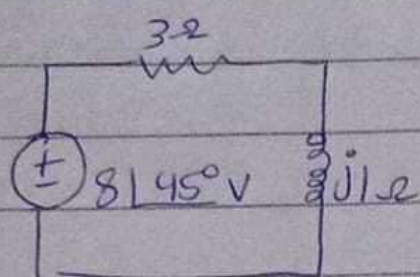 3Ω
+
-
8∠45° V
j1Ω